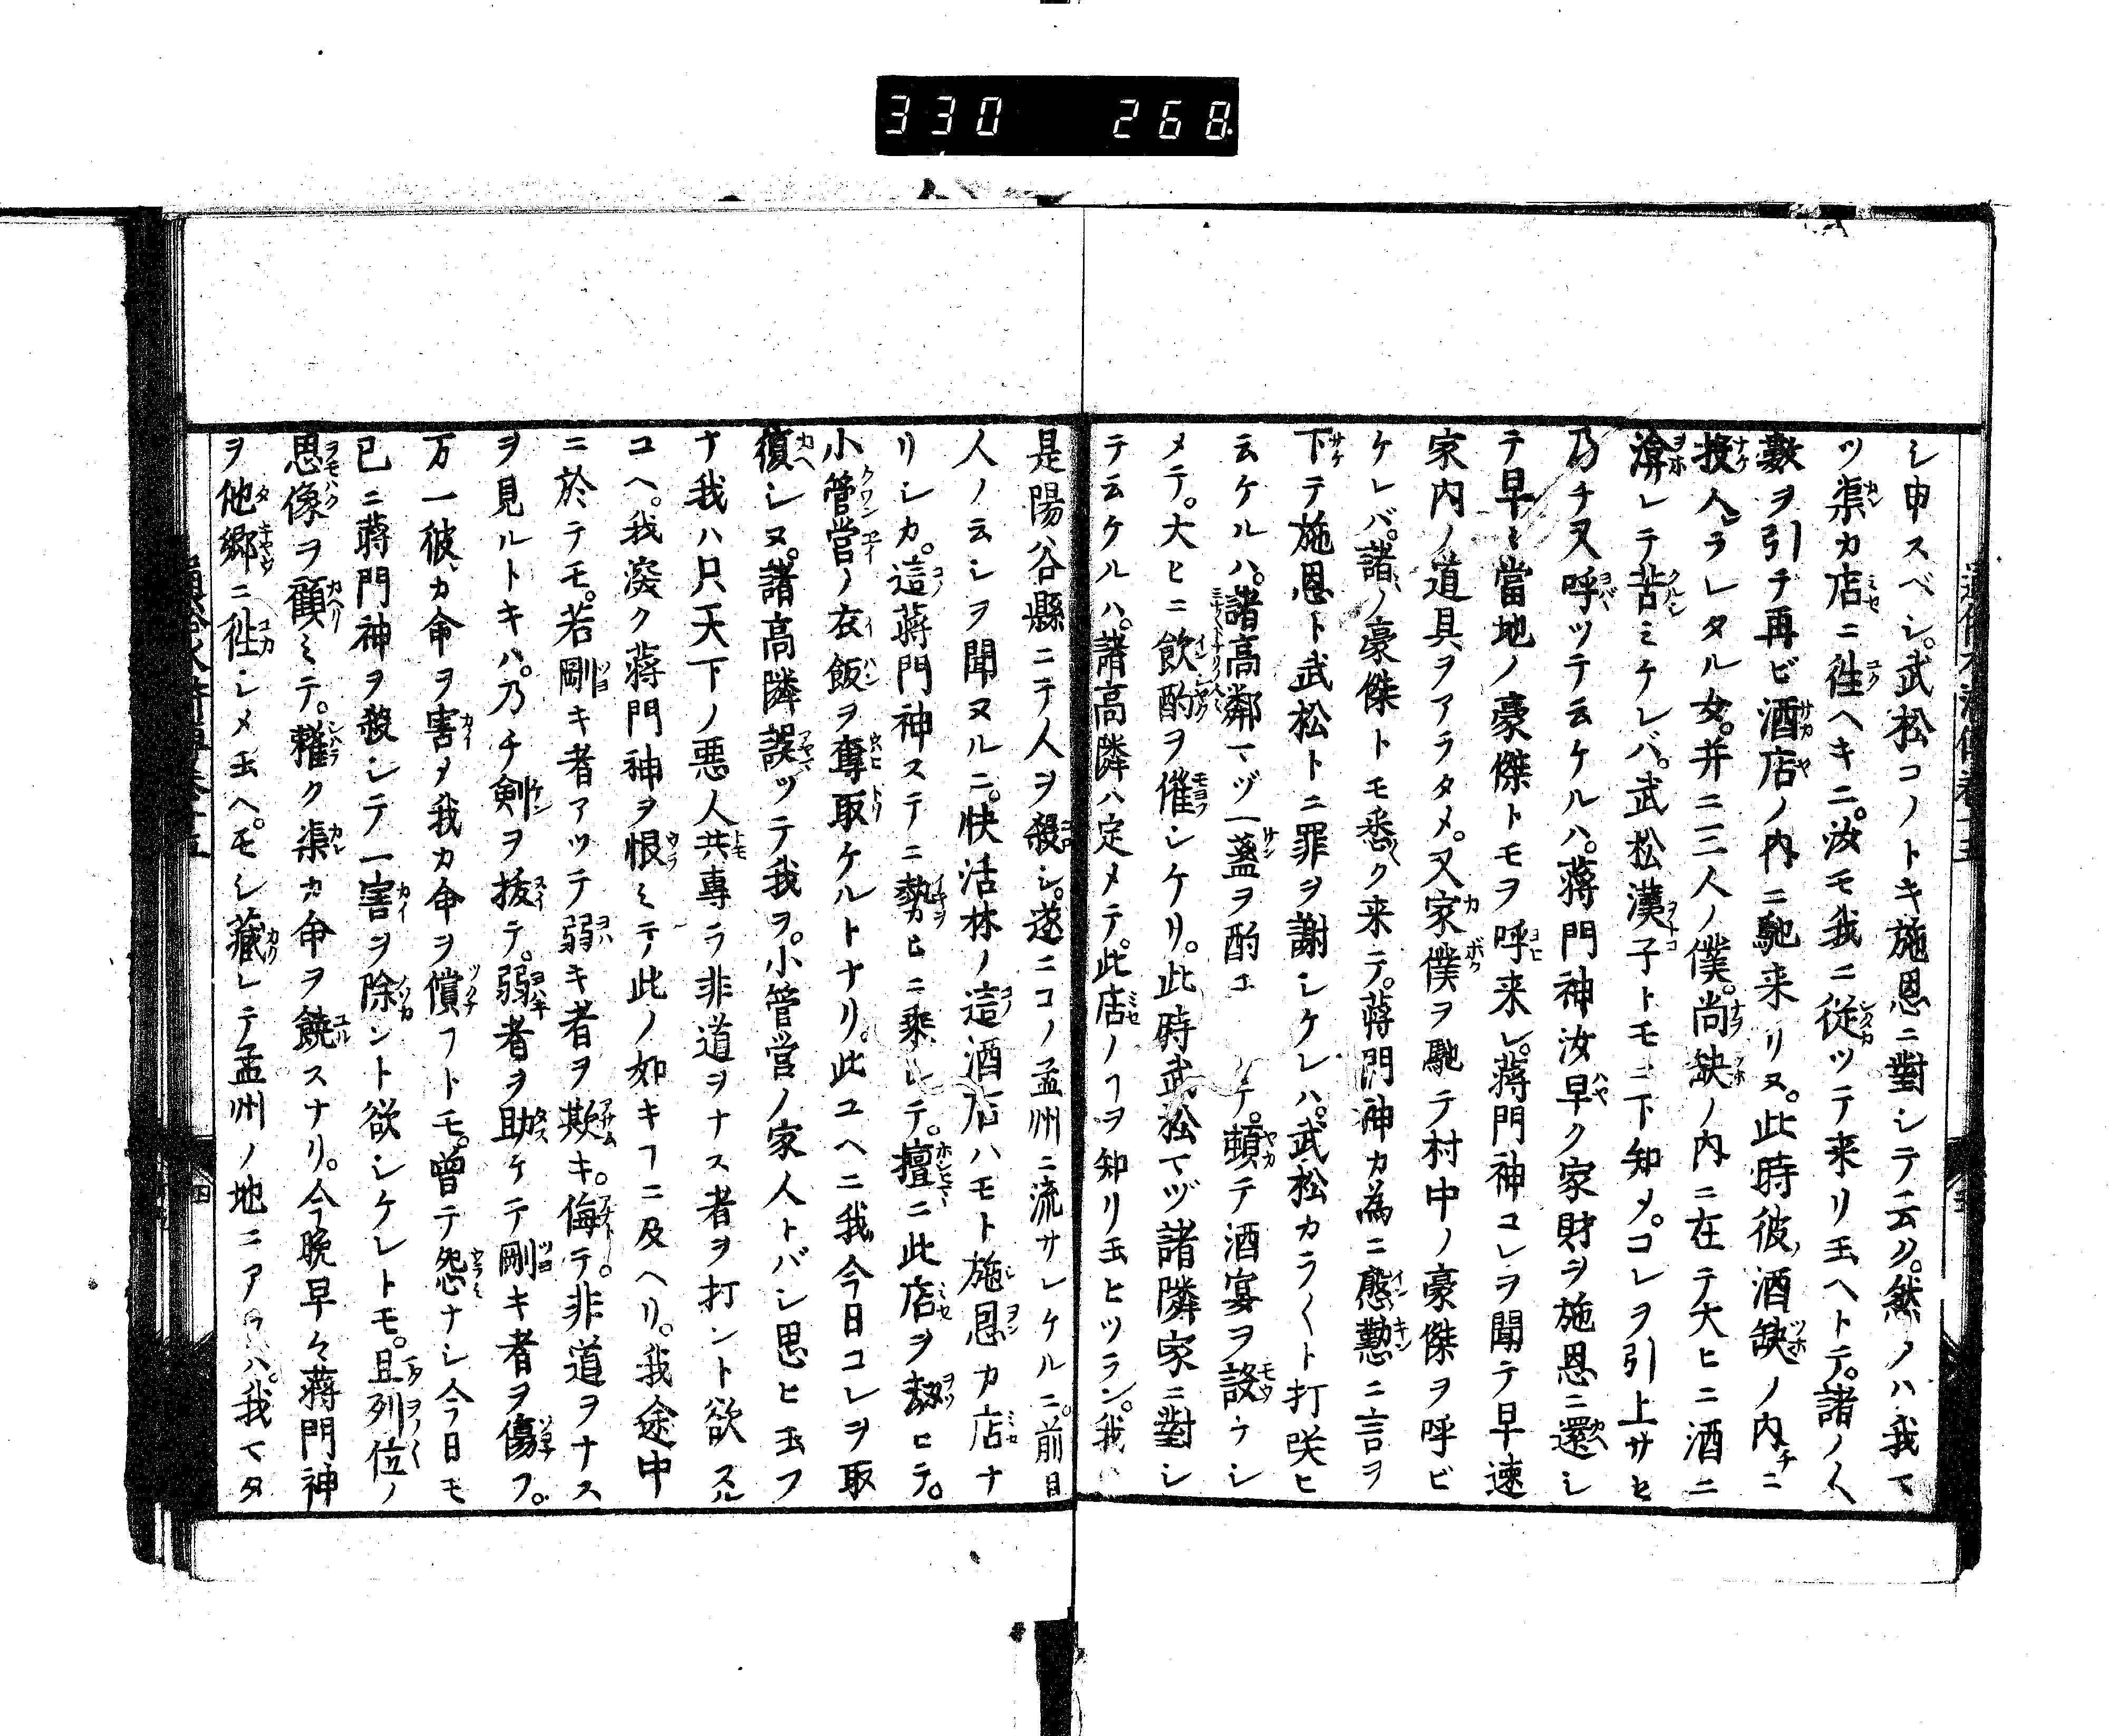 330 268
シ申スベシ。武松コノトキ施恩ニ對シテ云ク。然ノハ我マ
ツ渠カ店ニ徃ヘキニ。汝モ我ニ従ツテ来リ玉ヘトテ。諸ノ人
數ヲ引テ再ビ酒店ノ内ニ馳来リヌ。此時彼ノ酒缺ノ内チニ
投入ラレタル女。并ニ三人ノ僕。尚缺ノ内ニ在テ大ヒニ酒ニ
渰レテ苦ミケレバ。武松漢子トモニ下知メ。コレヲ引上サセ
乃チ又呼ツテ云ケルハ。蒋門神汝早ク家財ヲ施恩ニ還シ
テ早ミ當地ノ豪傑トモヲ呼来レ。蒋門神コレヲ聞テ早速
家内ノ道具ヲアラタメ。又家僕ヲ馳テ村中ノ豪傑ヲ呼ビ
ケレバ。諸ノ豪傑トモ悉ク来テ。蒋門神カ為ニ慇懃ニ言ヲ
下テ施恩ト武松トニ罪ヲ謝シケレハ。武松カラ〱ト打咲ヒ
云ケルハ。諸高鄰マヅ一盞ヲ酌エ テ。頓テ酒宴ヲ設ケシ
メテ。大ヒニ飲酌ヲ催シケリ。此時武松マヅ諸隣家ニ對シ
テ云ケルハ。諸高隣ハ定メテ。此店ノヿヲ知リ玉ヒツラン。我
是陽谷縣ニテ人ヲ殺シ。遂ニコノ孟州ニ流サレケルニ。前日
人ノ云シヲ聞ヌルニ。快活林ノ這酒店ハモト施恩カ店ナ
リシカ。這蒋門神ステニ勢ヒニ乗シテ。擅ニ此店ヲ刼ヒテ。
小管営ノ衣飯ヲ奪取ケルトナリ。此ユヘニ我今日コレヲ取
復シヌ。諸高隣誤ツテ我ヲ。小管営ノ家人トバシ思ヒ玉フ
ナ我ハ只天下ノ悪人共專ラ非道ヲナス者ヲ打ント欲スル
ユヘ。我深ク蒋門神ヲ恨ミテ此ノ如キヿニ及ヘリ。我途中
ニ於テモ。若剛キ者アツテ弱キ者ヲ欺キ。侮テ。非道ヲナス
ヲ見ルトキハ。乃チ剣ヲ抜テ。弱者ヲ助ケテ剛キ者ヲ傷フ。
万一彼カ命ヲ害メ我カ命ヲ償フトモ。曽テ怨ナシ今日モ
已ニ蒋門神ヲ殺シテ一害ヲ除ント欲シケレトモ。且列位ノ
思像ヲ顧ミテ。 ク渠カ命ヲ饒スナリ。今晩早々蒋門神
ヲ他郷ニ徃シメ玉ヘ。モシ藏レテ孟州ノ地ニアラハ。我マタ